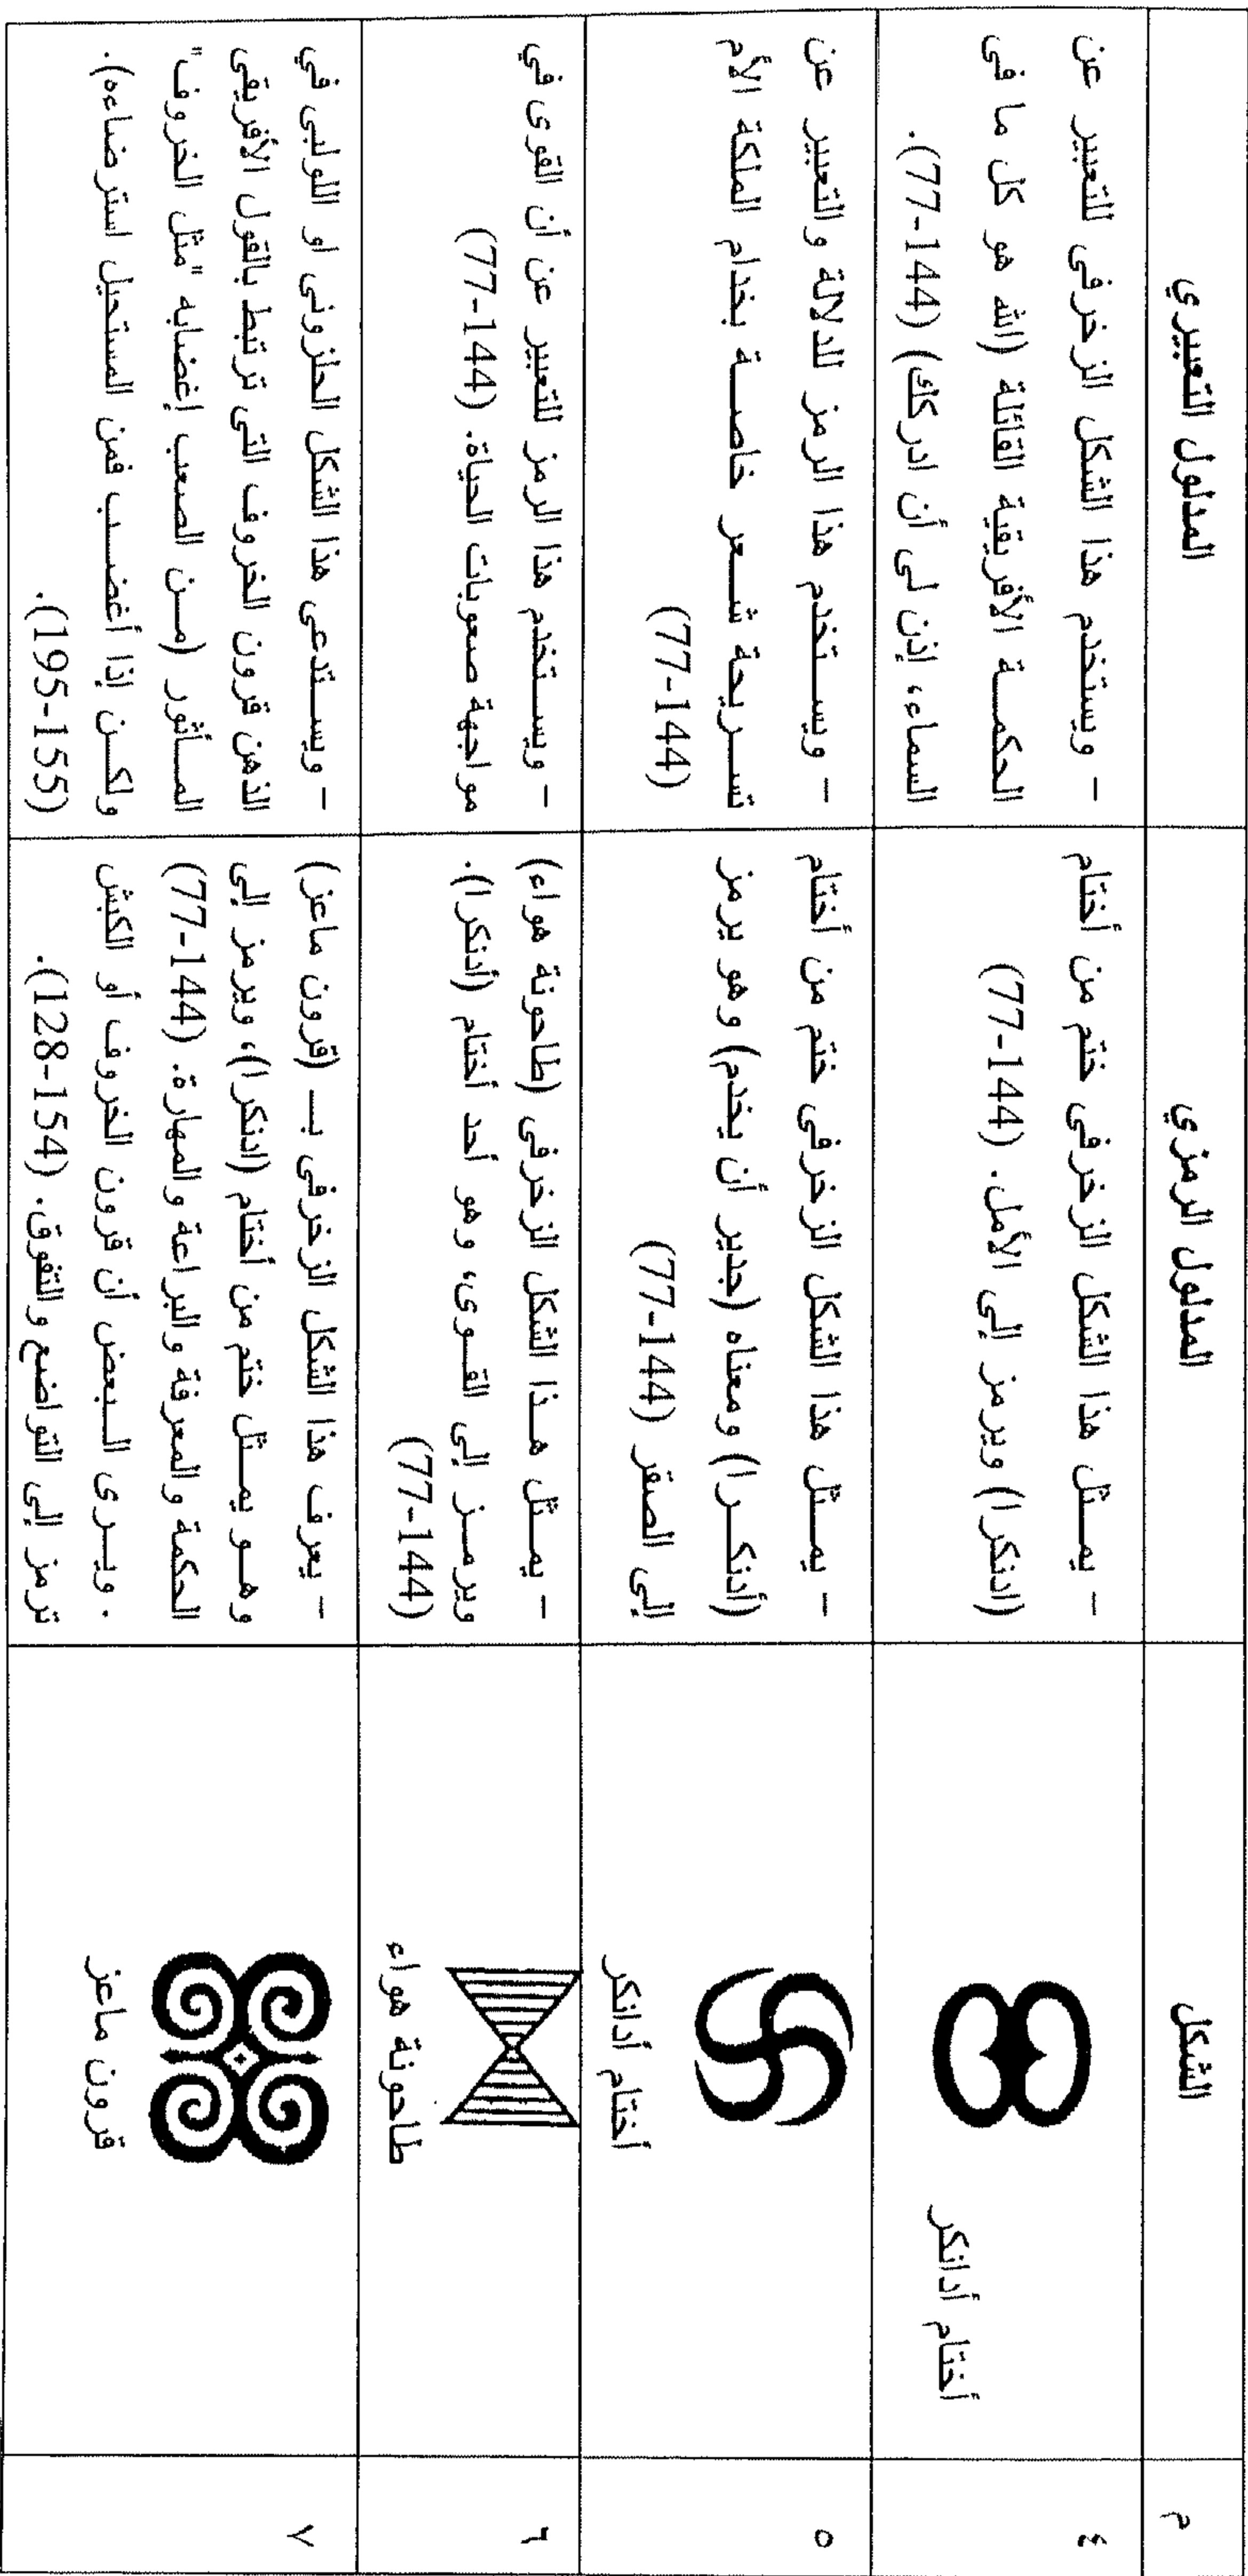 م
الشكل
المدلول الرمزي
المدلول التعبيري
٤
أختام أدانكر
– يمثل هذا الشكل الزخرفى ختم من أختام
(ادنكرا) ويرمز إلى الأمل. (144-77)
– ويستخدم هذا الشكل الزخرفى للتعبير عن
الحكمة الأفريقية القائلة (الله هو كل ما فى
السماء، إذن لى أن ادركك) (144-77).
٥
أختام أدانكر
– يمثل هذا الشكل الزخرفى ختم من أختام
(أدنكرا) ومعناه (جدير أن يخدم) وهو يرمز
إلى الصقر (144-77)
– ويستخدم هذا الرمز للدلالة والتعبير عن
تسريحة شعر خاصة بخدام الملكة الأم
(144-77)
٦
طاحونة هواء
– يمثل هذا الشكل الزخرفى (طاحونة هواء)
ويرمز إلى القوى، وهو أحد أختام (أدنكرا).
(144-77)
– ويستخدم هذا الرمز للتعبير عن أن القوى في
مواجهة صعوبات الحياة. (144-77)
٧
قرون ماعز
– يعرف هذا الشكل الزخرفى بـ (قرون ماعز)
وهو يمثل ختم من أختام (ادنكرا)، ويرمز إلى
الحكمة والمعرفة والبراعة والمهارة. (144-77)
. ويرى البعض أن قرون الخروف أو الكبش
ترمز إلى التواضع والتفوق. (154-128).
– ويستدعى هذا الشكل الحلزونى او اللولبى في
الذهن قرون الخروف التى ترتبط بالقول الأفريقى
المأثور (من الصعب إغضابه "مثل الخروف"
ولكن إذا أغضب فمن المستحيل استرضاءه).
(155-195).